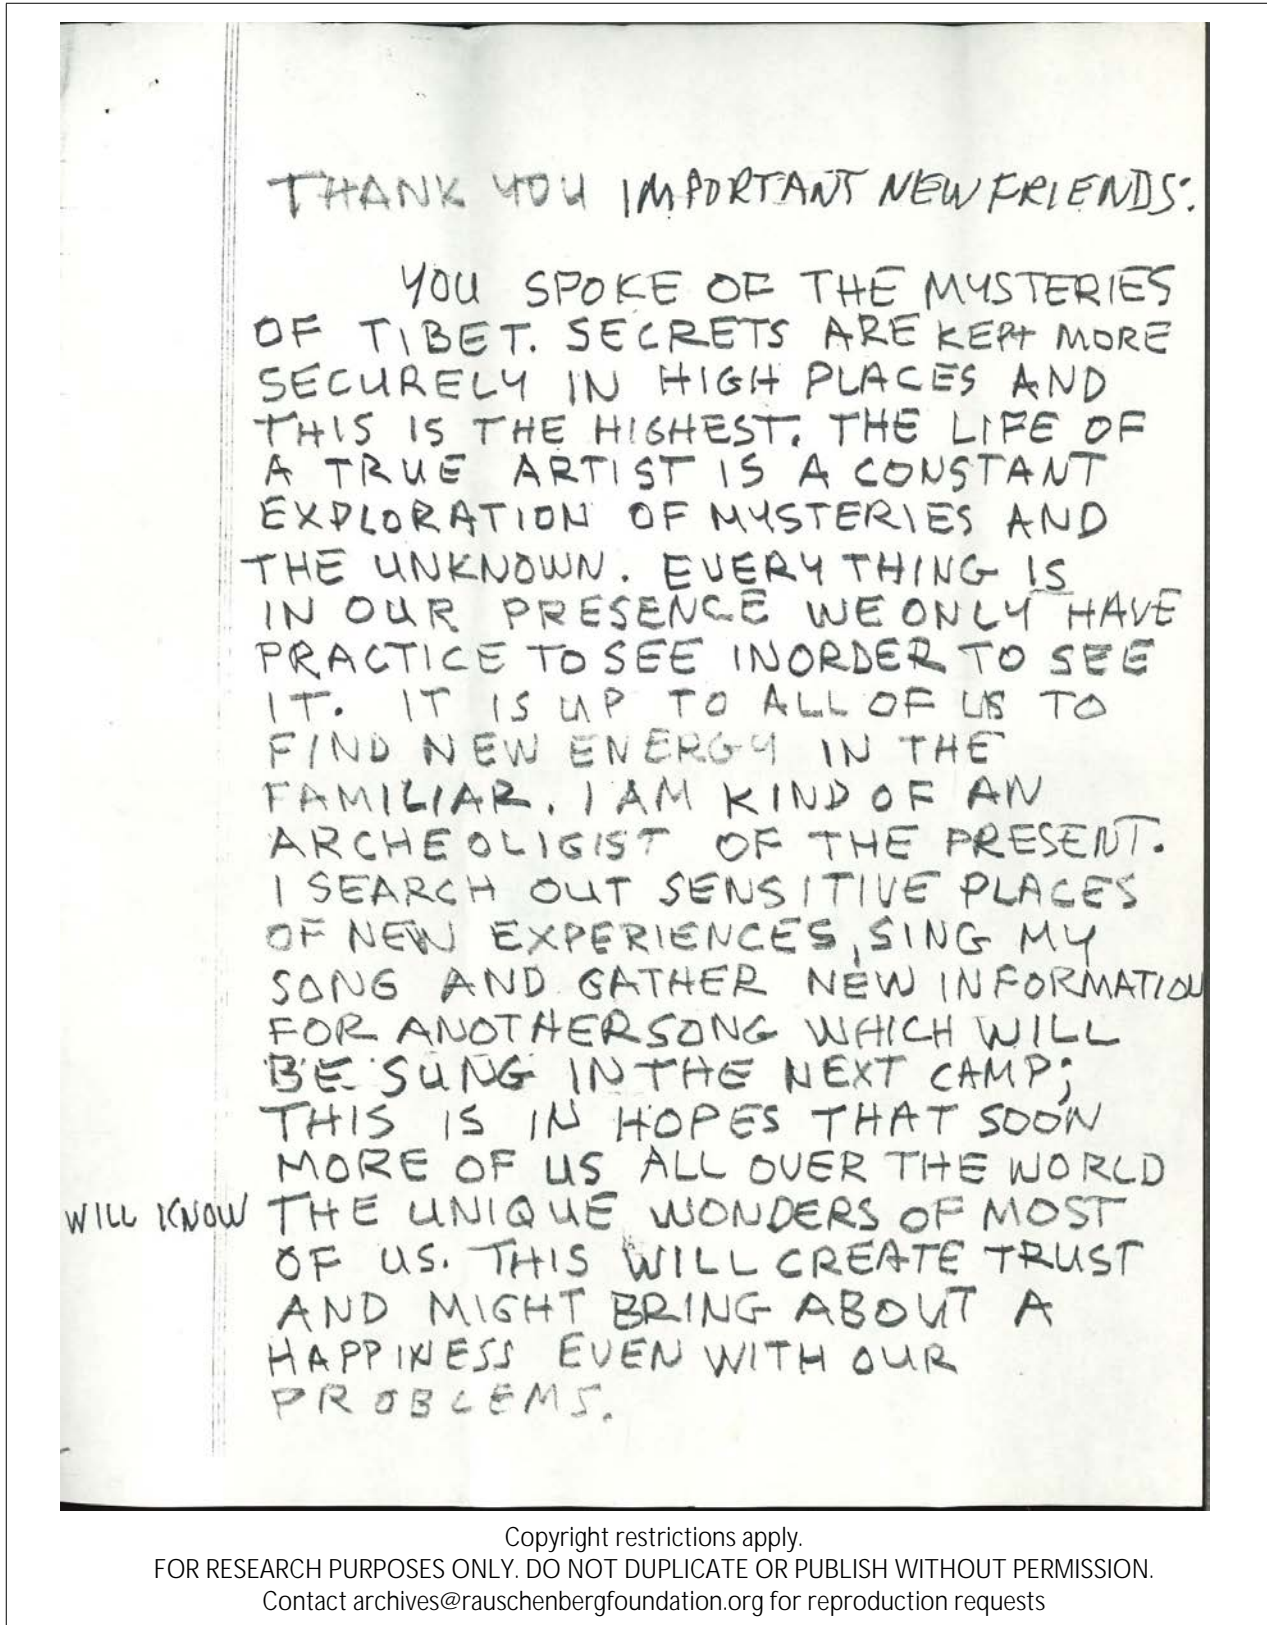 THANK YOU IMPORTANT NEW FRIENDS:
YOU SPOKE OF THE MYSTERIES
OF TIBET. SECRETS ARE KEPT MORE
SECURELY IN HIGH PLACES AND
THIS IS THE HIGHEST. THE LIFE OF
A TRUE ARTIST IS A CONSTANT
EXPLORATION OF MYSTERIES AND
THE UNKNOWN. EVERY THING IS
IN OUR PRESENCE WE ONLY HAVE
PRACTICE TO SEE INORDER TO SEE
IT. IT IS UP TO ALL OF US TO
FIND NEW ENERGY IN THE
FAMILIAR. I AM KIND OF AN
ARCHEOLIGIST OF THE PRESENT.
I SEARCH OUT SENSITIVE PLACES
OF NEW EXPERIENCES, SING MY
SONG AND GATHER NEW INFORMATION
FOR ANOTHER SONG WHICH WILL
BE SUNG IN THE NEXT CAMP;
THIS IS IN HOPES THAT SOON
MORE OF US ALL OVER THE WORLD
WILL KNOW THE UNIQUE WONDERS OF MOST
OF US. THIS WILL CREATE TRUST
AND MIGHT BRING ABOUT A
HAPPINESS EVEN WITH OUR
PROBLEMS.
Copyright restrictions apply.
FOR RESEARCH PURPOSES ONLY. DO NOT DUPLICATE OR PUBLISH WITHOUT PERMISSION.
Contact archives@rauschenbergfoundation.org for reproduction requests